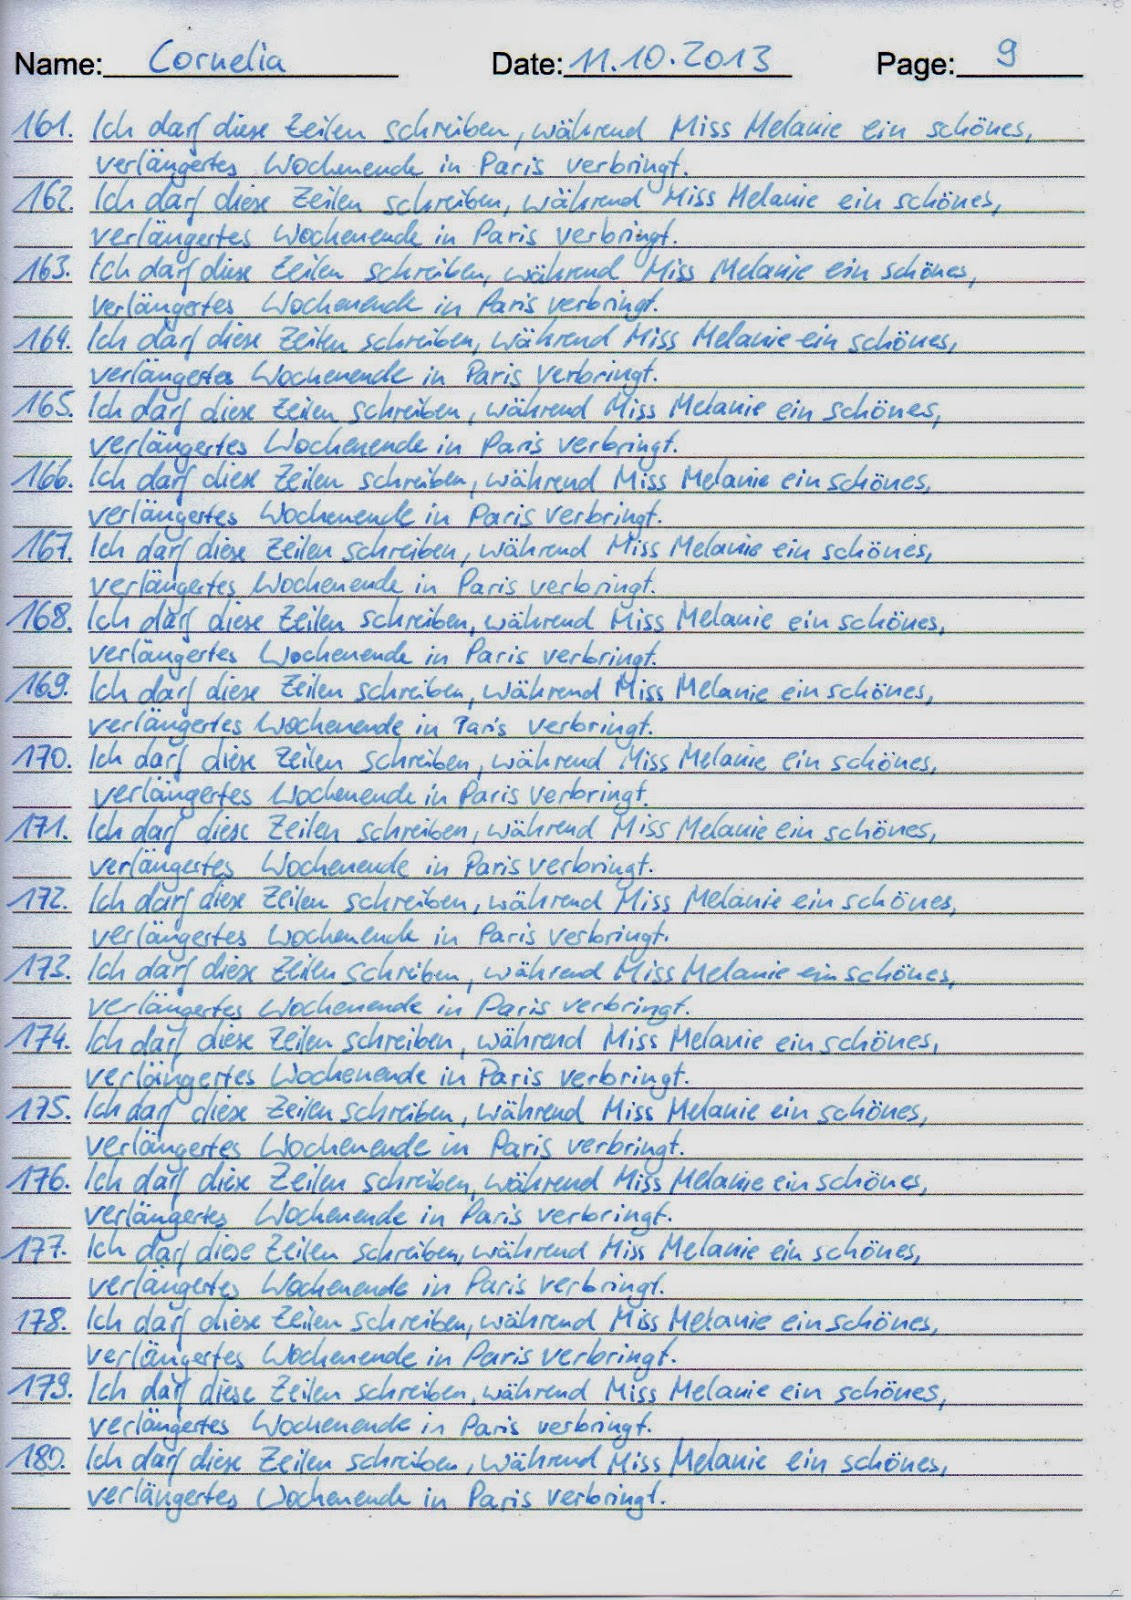 Name: Cornelia Date: 11.10.2013 Page: 9
161. Ich darf diese Zeilen schreiben, während Miss Melanie ein schönes,
verlängertes Wochenende in Paris verbringt.
162. Ich darf diese Zeilen schreiben, während Miss Melanie ein schönes,
verlängertes Wochenende in Paris verbringt.
163. Ich darf diese Zeilen schreiben, während Miss Melanie ein schönes,
verlängertes Wochenende in Paris verbringt.
164. Ich darf diese Zeilen schreiben, während Miss Melanie ein schönes,
verlängertes Wochenende in Paris verbringt.
165. Ich darf diese Zeilen schreiben, während Miss Melanie ein schönes,
verlängertes Wochenende in Paris verbringt.
166. Ich darf diese Zeilen schreiben, während Miss Melanie ein schönes,
verlängertes Wochenende in Paris verbringt.
167. Ich darf diese Zeilen schreiben, während Miss Melanie ein schönes,
verlängertes Wochenende in Paris verbringt.
168. Ich darf diese Zeilen schreiben, während Miss Melanie ein schönes,
verlängertes Wochenende in Paris verbringt.
169. Ich darf diese Zeilen schreiben, während Miss Melanie ein schönes,
verlängertes Wochenende in Paris verbringt.
170. Ich darf diese Zeilen schreiben, während Miss Melanie ein schönes,
verlängertes Wochenende in Paris verbringt.
171. Ich darf diese Zeilen schreiben, während Miss Melanie ein schönes,
verlängertes Wochenende in Paris verbringt.
172. Ich darf diese Zeilen schreiben, während Miss Melanie ein schönes,
verlängertes Wochenende in Paris verbringt.
173. Ich darf diese Zeilen schreiben, während Miss Melanie ein schönes,
verlängertes Wochenende in Paris verbringt.
174. Ich darf diese Zeilen schreiben, während Miss Melanie ein schönes,
verlängertes Wochenende in Paris verbringt.
175. Ich darf diese Zeilen schreiben, während Miss Melanie ein schönes,
verlängertes Wochenende in Paris verbringt.
176. Ich darf diese Zeilen schreiben, während Miss Melanie ein schönes,
verlängertes Wochenende in Paris verbringt.
177. Ich darf diese Zeilen schreiben, während Miss Melanie ein schönes,
verlängertes Wochenende in Paris verbringt.
178. Ich darf diese Zeilen schreiben, während Miss Melanie ein schönes,
verlängertes Wochenende in Paris verbringt.
179. Ich darf diese Zeilen schreiben, während Miss Melanie ein schönes,
verlängertes Wochenende in Paris verbringt.
180. Ich darf diese Zeilen schreiben, während Miss Melanie ein schönes,
verlängertes Wochenende in Paris verbringt.